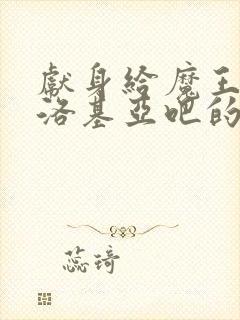 獻身給魔王
洛基亞吧的
蕊琦